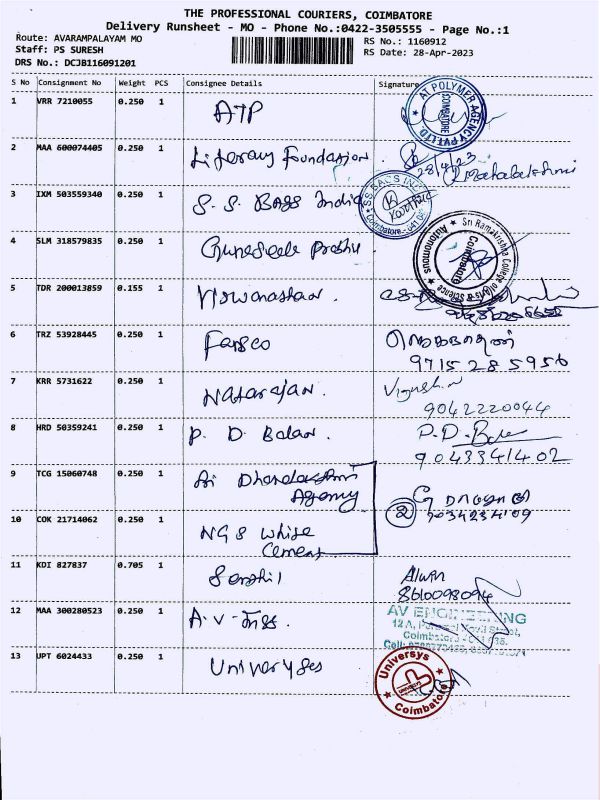 THE PROFESSIONAL COURIERS, COIMBATORE
Delivery Runsheet - MO - Phone No.:0422-3505555 - Page No.:1
Route: AVARAMPALAYAM MO
RS No.: 1160912
Staff: PS SURESH
RS Date: 28-Apr-2023
DRS No.: DCJB116091201
S No Consignment No Weight PCS Consignee Details Signature
1 VRR 7210055 0.250 1 ATP
AT POLYMER AGENCY PVT LTD
COIMBATORE
2 MAA 600074405 0.250 1 Literary Foundation
28/4/23
Mahalakshmi
3 IXM 503559340 0.250 1 S. S. BAGS India
SS BAGS INC
Coimbatore - 641
4 SLM 318579835 0.250 1 Prabhu
Sri Ramakrishna College of Arts & Science
Autonomous
Coimbatore
5 TDR 200013859 0.155 1 Viswanathan.
6 TRZ 53928445 0.250 1 Fabsco
97152 85956
7 KRR 5731622 0.250 1 Natarajan.
9042220044
8 HRD 50359241 0.250 1 P. D. Balan.
P.D. Bala
9043341402
9 TCG 15060748 0.250 1 Sri Dhanalakshmi
Agency
2
10 COK 21714062 0.250 1 NGS White
Cement
11 KDI 827837 0.705 1 Senthil
Alwin
8610098094
12 MAA 300280523 0.250 1 A.V.
AV ENGINEERING
Coimbatore
Cell:
13 UPT 6024433 0.250 1 Universyses
Universys
Coimbatore